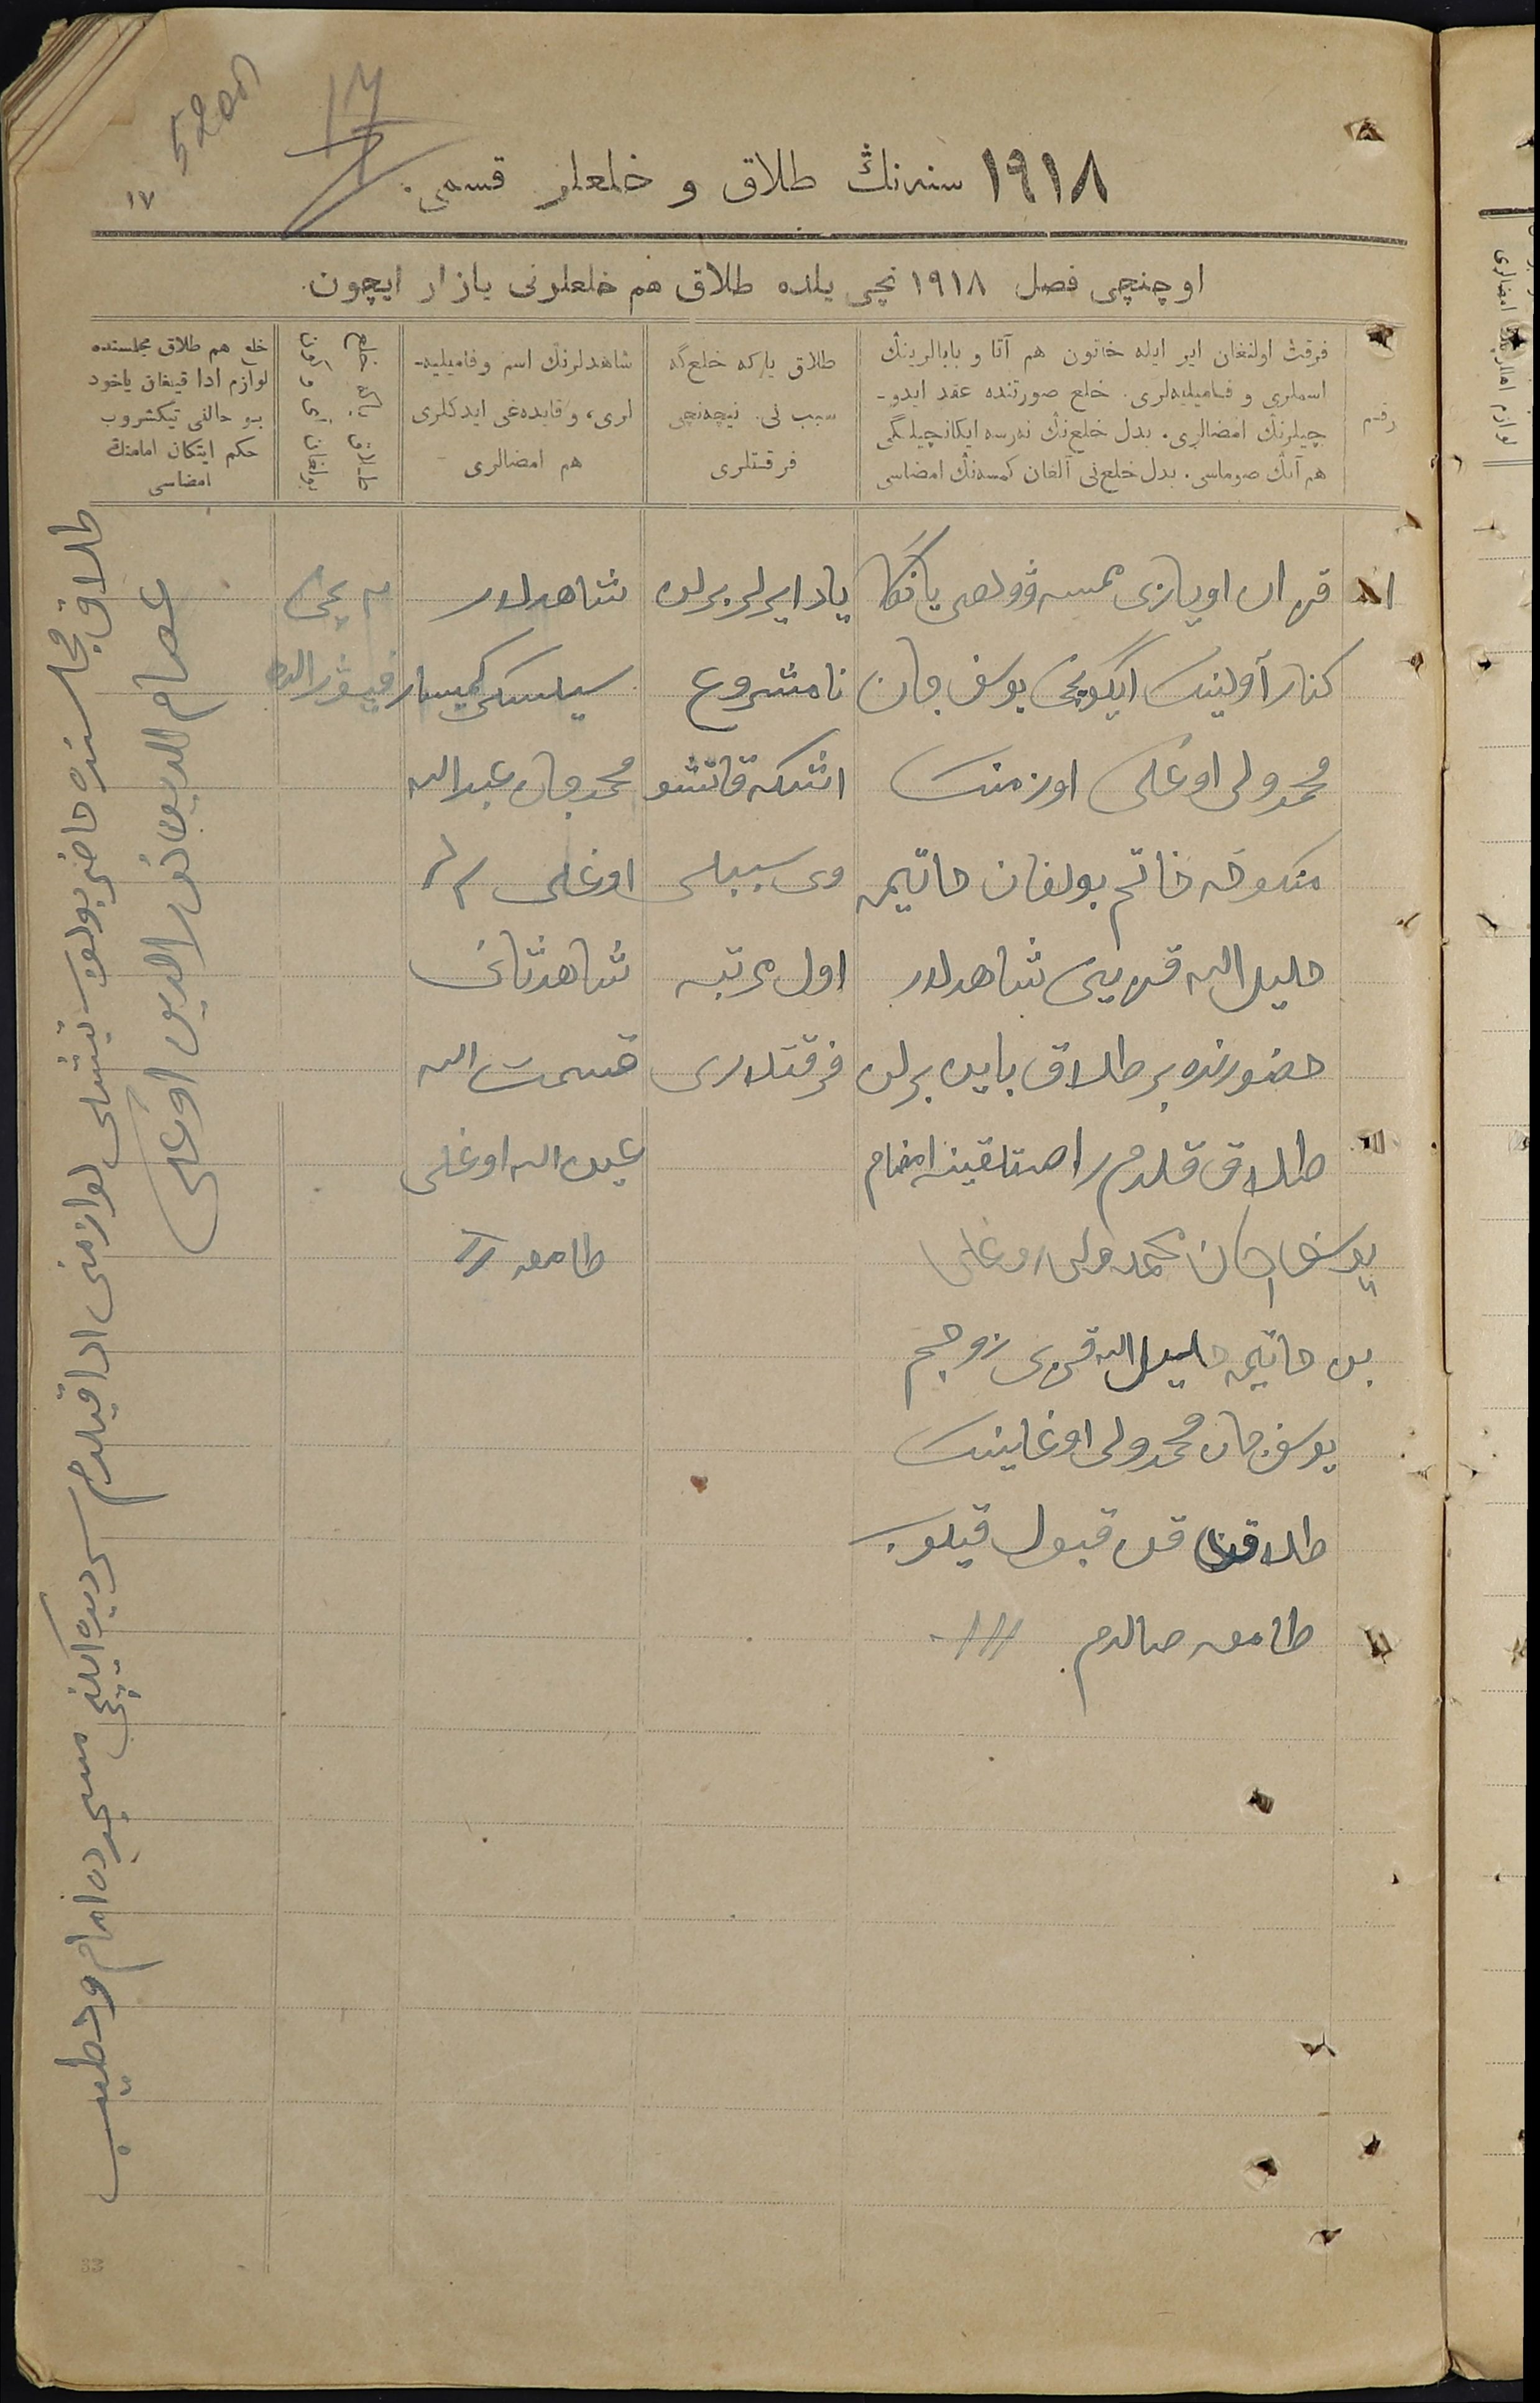 5200
17
١٧
١٩١٨ سنه‌نڭ طلاق و خلعلر قسمی.
اوچنچی فصل ١٩١٨ نچی یلده طلاق هم خلعلرنی یازار ایچون.
رقم
فرقت اولنغان ایر ایله خاتون هم آتا و بابالرینڭ
اسملری و فامیلیه‌لری. خلع صورتنده عقد ایدو-
چیلرنڭ امضالری. بدل خلع‌نڭ نه‌رسه ایکانچیلگی
هم آنڭ صوماسی. بدل خلع‌نی آلغان کمسه‌نڭ امضاسی
طلاق یاکه خلع‌گه
سبب نی. نیچه‌نچی
فرقتلری
شاهدلرنڭ اسم و فامیلیه-
لری، و قایده‌غی ایدکلری
هم امضالری
طلاق یاکه خلع
بولغان آی و کون
خلع هم طلاق مجلسنده
لوازم ادا قیلغان یاخود
بو حالنی تیکشروب
حکم ایتکان امامنڭ
امضاسی
١
یانکا
کنار آولینک یوسف جان
محمدولی اوغلی اوزمنک
منکوحه خاتم بولغان حاتیمه
خلیل الله قزینی شاهدلار
حضورنده بر طلاق باین برلن
طلاق قلدم امضام
یوسف جان محمدولی اوغلی
بن حاتیمه خلیل الله قزی زوجم
یوسف جان محمدولی اوغلینک
طلاقن قبول قیلوب
طامغه صالدم
یاد ایرلر برلن
نامشروع
اشکه قاتشو
وی سببلی
اول مرتبه
فرقتلاری
شاهدلار
سیلسکی کمیسار
محمدجان عبدالله
اوغلی
شاهد ثانی
قسمت الله
عبدالله اوغلی
طامغه
فیورالده
طلاق مجلسنده حاضر بولوب تیشلی لوازمنی ادا قیلدم ایکنچی مسجدده امام و خطیب
عصام الدین نورالدین اوغلی